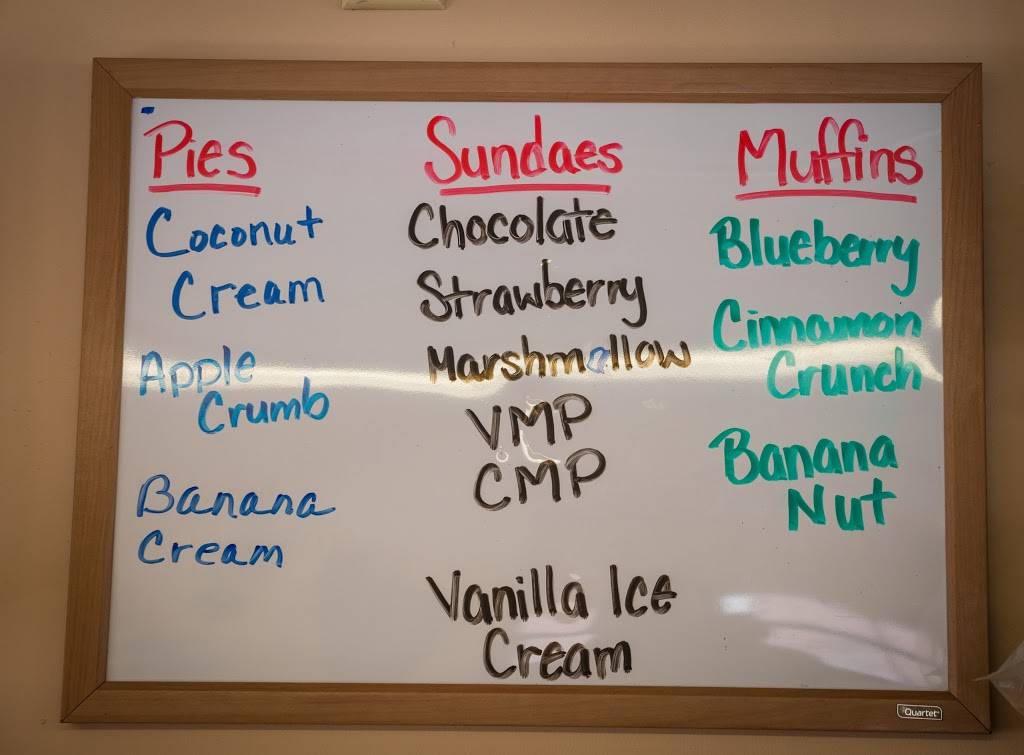 Pies
Coconut
Cream
Apple
Crumb
Banana
Cream
Sundaes
Chocolate
Strawberry
Marshmallow
VMP
CMP
Vanilla Ice
Cream
Muffins
Blueberry
Cinnamon
Crunch
Banana
Nut
Quartet